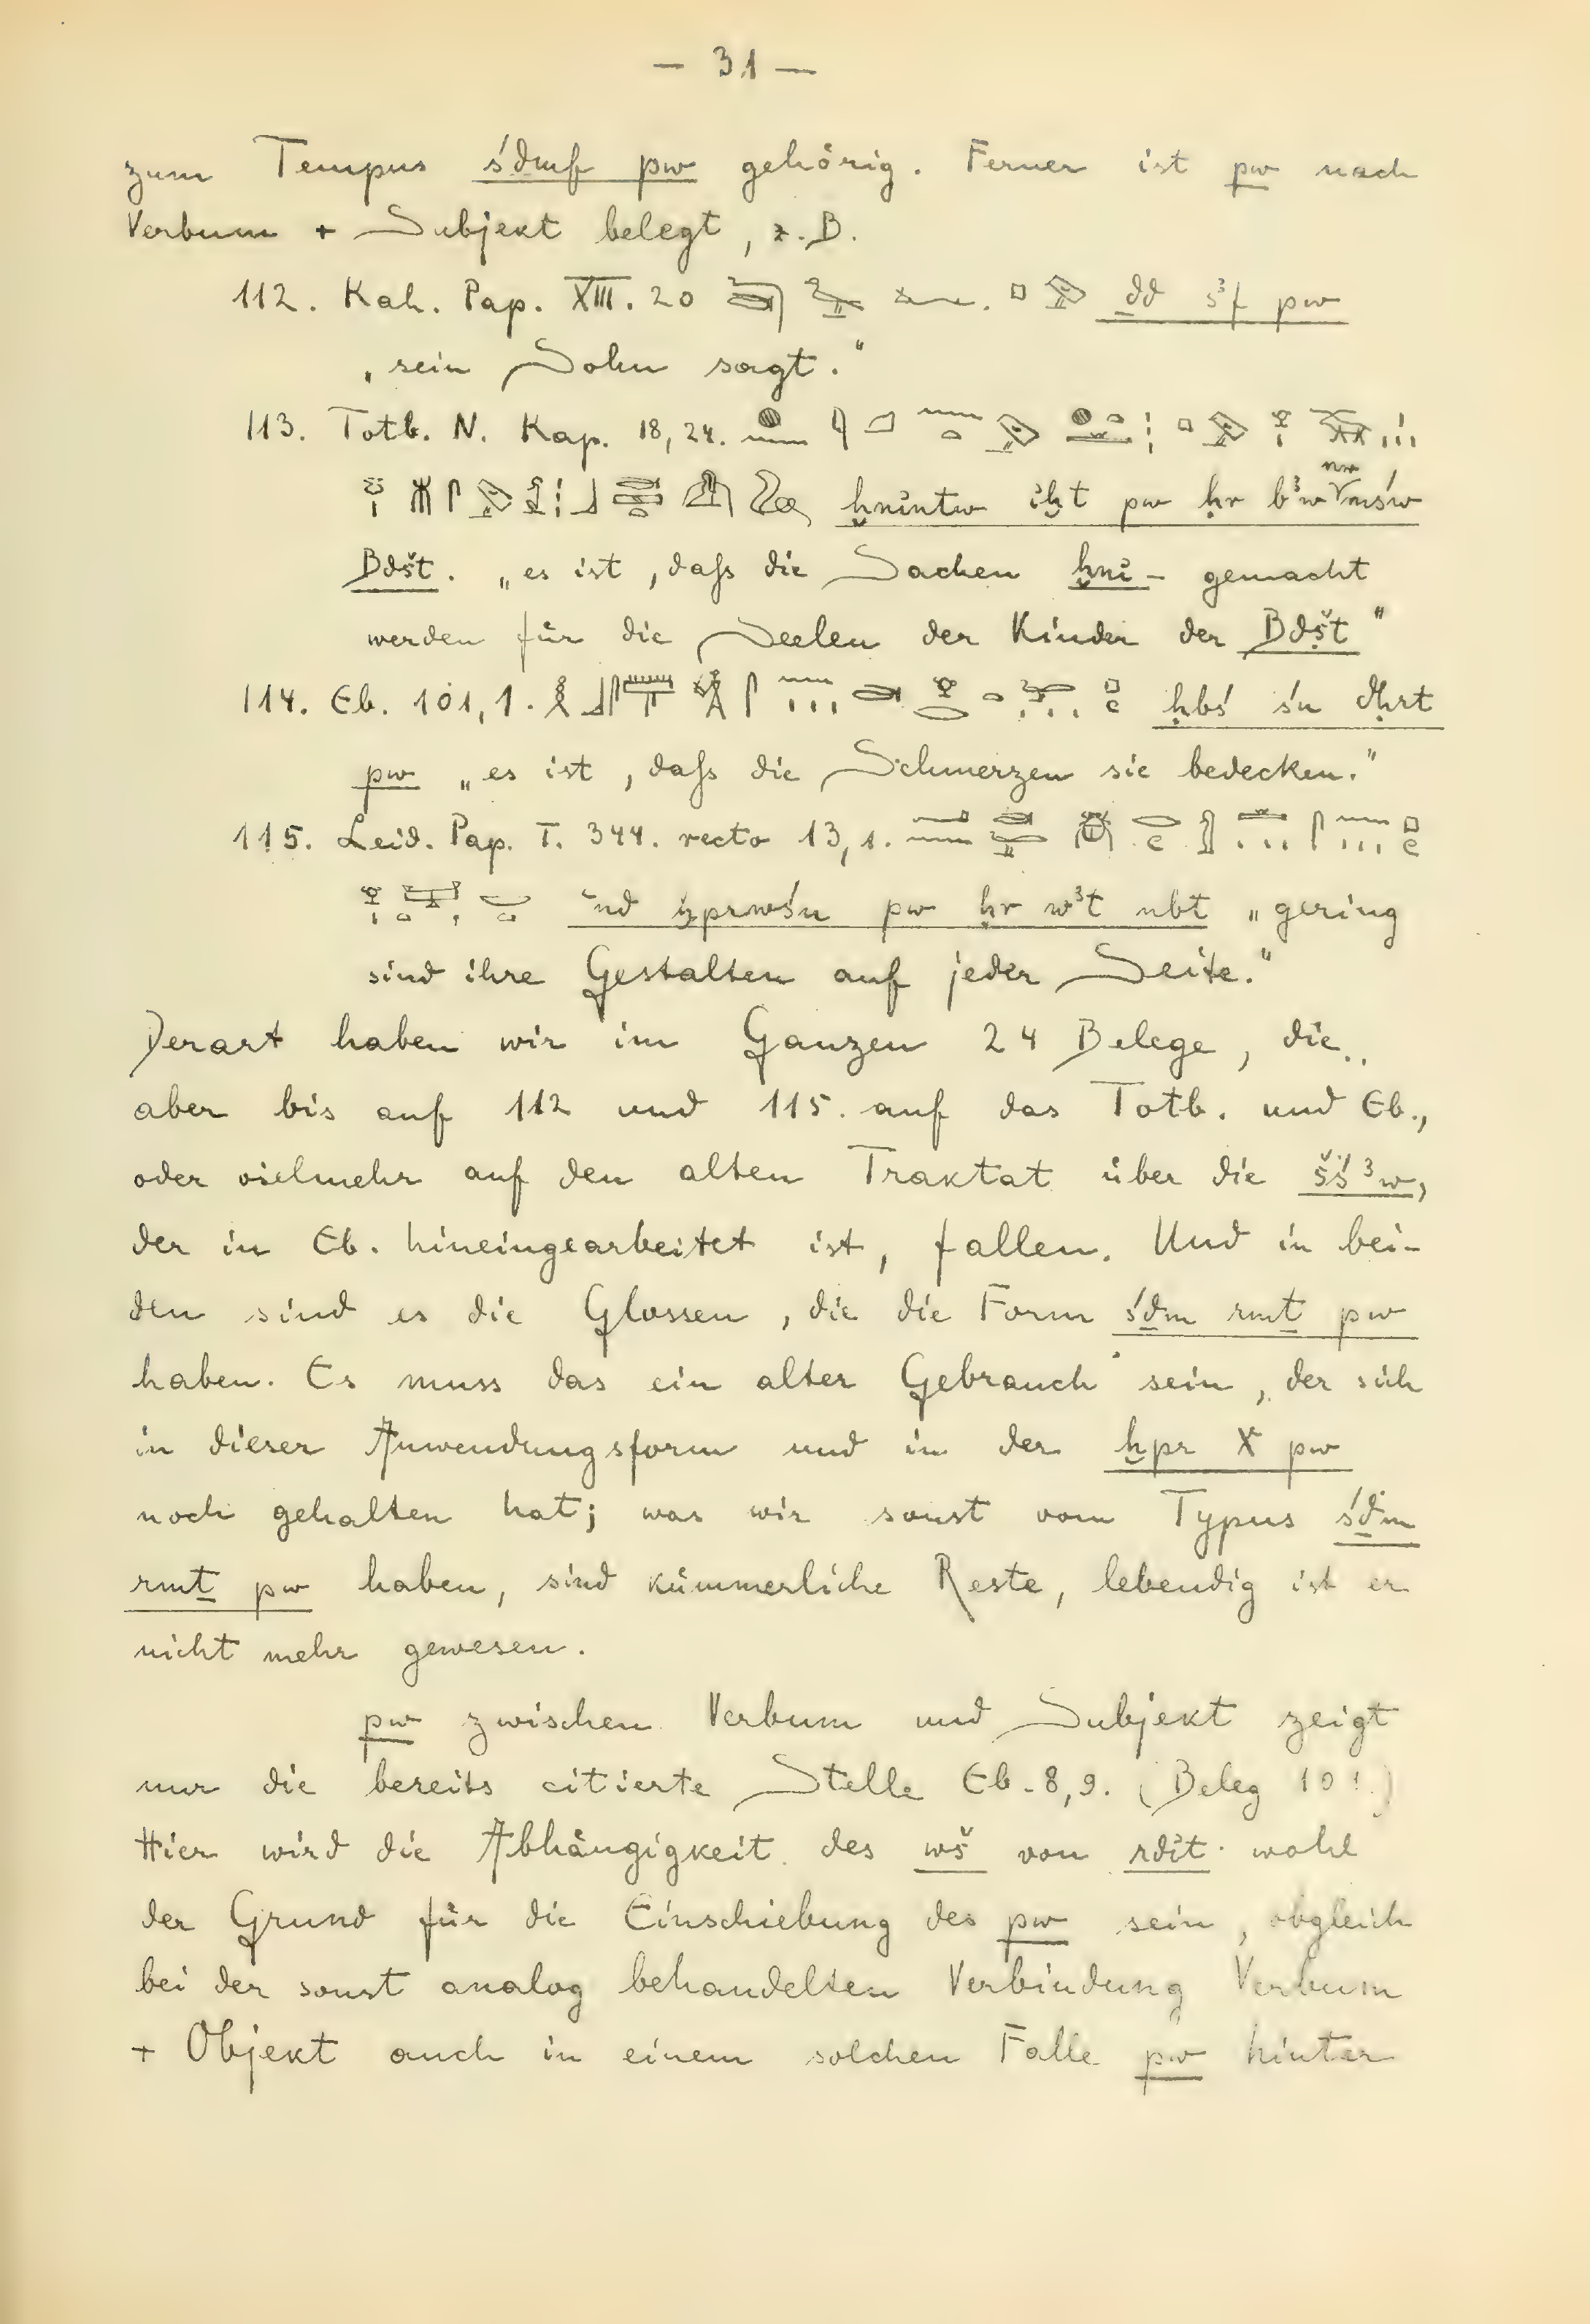 — 31 —
zum Tempus śḏmf pw gehörig. Ferner ist pw nach
Verbum + Subjekt belegt, z. B.
112. Kah. Pap. XIII. 20 ḏd s³f pw
„sein Sohn sagt.“
113. Totb. N. Kap. 18,24.
ḫnintw iḫt pw ḥr b³w nw mśw
Bdšt. „es ist, daſs die Sachen ḫni- gemacht
werden für die Seelen der Kinder der Bdšt“
114. Eb. 101,1. ḥbś śn dḥrt
pw „es ist, daſs die Schmerzen sie bedecken.“
115. Leid. Pap. I. 344. recto 13,1.
ʿnd ḫprwśn pw ḥr w³t nbt „gering
sind ihre Gestalten auf jeder Seite.“
Derart haben wir im Ganzen 24 Belege, die
aber bis auf 112 und 115. auf das Totb. und Eb.,
oder vielmehr auf den alten Traktat über die šś³w,
der in Eb. hineingearbeitet ist, fallen. Und in bei-
den sind es die Glossen, die die Form śḏm rmṯ pw
haben. Es muss das ein alter Gebrauch sein, der sich
in dieser Anwendungsform und in der ḫpr X pw
noch gehalten hat; was wir sonst vom Typus śḏm
rmṯ pw haben, sind kümmerliche Reste, lebendig ist er
nicht mehr gewesen.
pw zwischen Verbum und Subjekt zeigt
nur die bereits citierte Stelle Eb. 8,9. (Beleg 101.)
Hier wird die Abhängigkeit des wš von rdit wohl
der Grund für die Einschiebung des pw sein, obgleich
bei der sonst analog behandelten Verbindung Verbum
+ Objekt auch in einem solchen Falle pw hinter